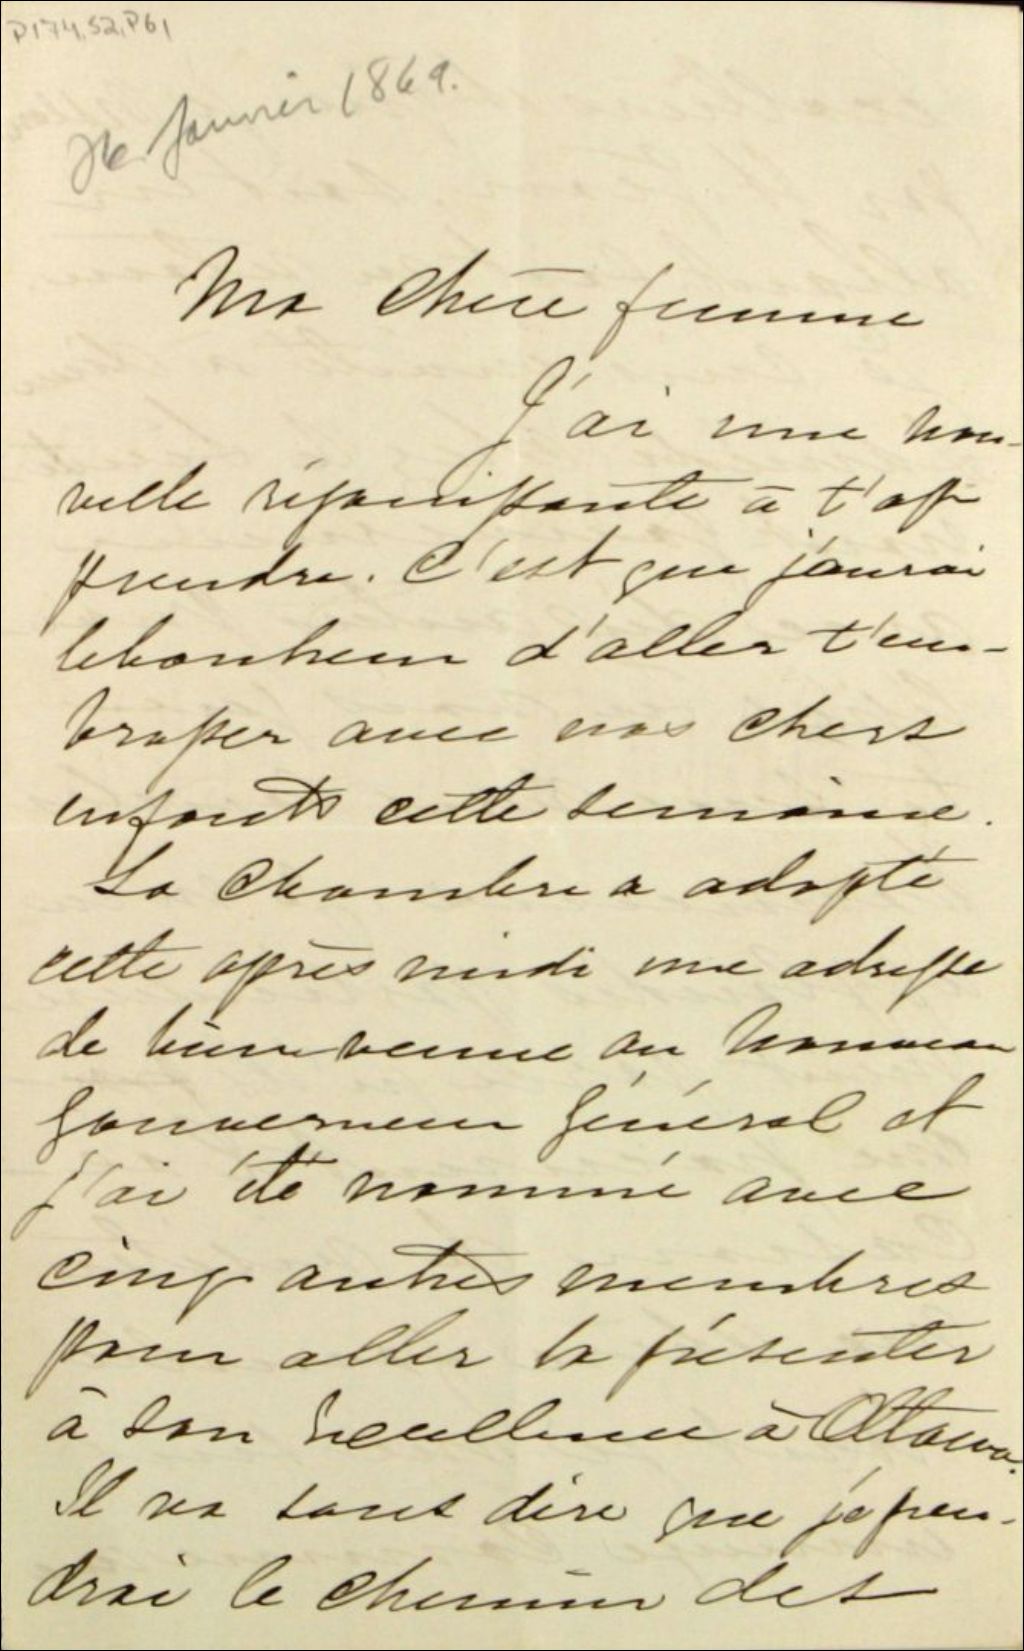 P174,S2,P61
26 Janvier 1869.
Ma chère femme
J'ai une nou-
velle réjouissante à t'ap
prendre. C'est que j'aurai
le bonheur d'aller t'em-
brasser avec nos chers
enfants cette semaine.
La Chambre a adopté
cette après midi une adresse
de bienvenue au nouveau
gouverneur général et
j'ai été nommé avec
cinq autres membres
pour aller la présenter
à son Excellence à Ottawa.
Il va sans dire que je pren-
drai le chemin des